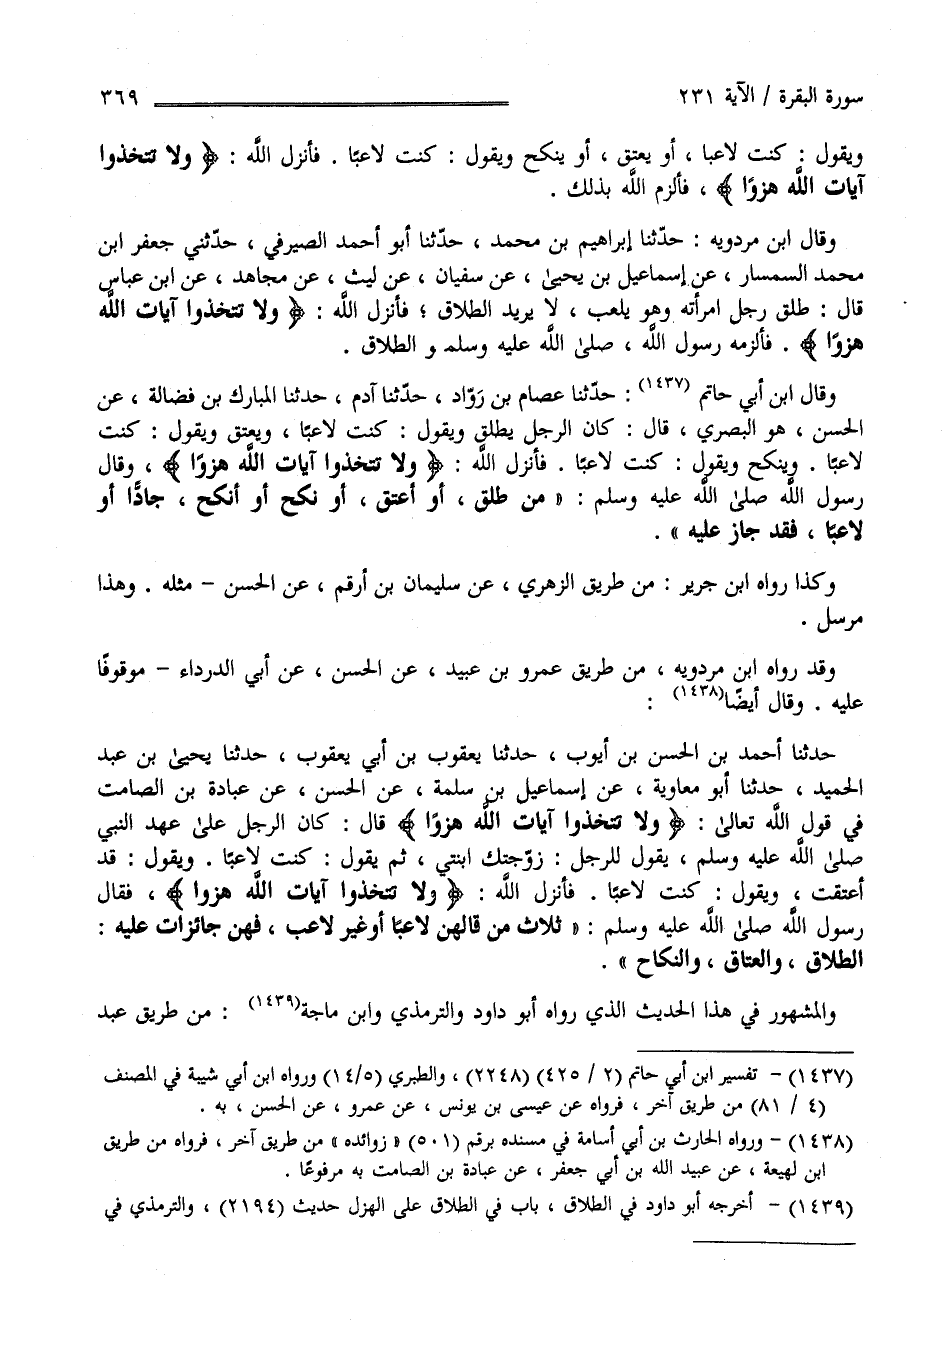 سورة البقرة / الآية ٢٣١ ٣٦٩
ويقول : كنت لاعبا ، أو يعتق ، أو ينكح ويقول : كنت لاعبًا . فأنزل الله : ﴿ ولا تتخذوا
آيات الله هزوًا ﴾ ، فألزم الله بذلك .
وقال ابن مردويه : حدّثنا إبراهيم بن محمد ، حدّثنا أبو أحمد الصيرفي ، حدّثني جعفر ابن
محمد السمسار ، عن إسماعيل بن يحيىٰ ، عن سفيان ، عن ليث ، عن مجاهد ، عن ابن عباس
قال : طلق رجل امرأته وهو يلعب ، لا يريد الطلاق ؛ فأنزل الله : ﴿ ولا تتخذوا آيات الله
هزوًا ﴾ . فألزمه رسول الله ، صلىٰ الله عليه وسلم و الطلاق .
وقال ابن أبي حاتم (١٤٣٧) : حدّثنا عصام بن رَوّاد ، حدّثنا آدم ، حدثنا المبارك بن فضالة ، عن
الحسن ، هو البصري ، قال : كان الرجل يطلق ويقول : كنت لاعبًا ، ويعتق ويقول : كنت
لاعبًا . وينكح ويقول : كنت لاعبًا . فأنزل الله : ﴿ ولا تتخذوا آيات الله هزوًا ﴾ ، وقال
رسول الله صلىٰ الله عليه وسلم : « من طلق ، أو أعتق ، أو نكح أو أنكح ، جادًّا أو
لاعبًا ، فقد جاز عليه » .
وكذا رواه ابن جرير : من طريق الزهري ، عن سليمان بن أرقم ، عن الحسن – مثله . وهذا
مرسل .
وقد رواه ابن مردويه ، من طريق عمرو بن عبيد ، عن الحسن ، عن أبي الدرداء – موقوفًا
عليه . وقال أيضًا(١٤٣٨) :
حدثنا أحمد بن الحسن بن أيوب ، حدثنا يعقوب بن أبي يعقوب ، حدثنا يحيىٰ بن عبد
الحميد ، حدثنا أبو معاوية ، عن إسماعيل بن سلمة ، عن الحسن ، عن عبادة بن الصامت
في قول الله تعالىٰ : ﴿ ولا تتخذوا آيات الله هزوًا ﴾ قال : كان الرجل علىٰ عهد النبي
صلىٰ الله عليه وسلم ، يقول للرجل : زوّجتك ابنتي ، ثم يقول : كنت لاعبًا . ويقول : قد
أعتقت ، ويقول : كنت لاعبًا . فأنزل الله : ﴿ ولا تتخذوا آيات الله هزوا ﴾ ، فقال
رسول الله صلىٰ الله عليه وسلم : « ثلاث من قالهن لاعبًا أوغير لاعب ، فهن جائزات عليه :
الطلاق ، والعتاق ، والنكاح » .
والمشهور في هذا الحديث الذي رواه أبو داود والترمذي وابن ماجة(١٤٣٩) : من طريق عبد
(١٤٣٧) – تفسير ابن أبي حاتم (٢ / ٤٢٥) (٢٢٤٨) ، والطبري (١٤/٥) ورواه ابن أبي شيبة في المصنف
(٤ / ٨١) من طريق آخر ، فرواه عن عيسى بن يونس ، عن عمرو ، عن الحسن ، به .
(١٤٣٨) – ورواه الحارث بن أبي أسامة في مسنده برقم (٥٠١) « زوائده » من طريق آخر ، فرواه من طريق
ابن لهيعة ، عن عبيد الله بن أبي جعفر ، عن عبادة بن الصامت به مرفوعًا .
(١٤٣٩) – أخرجه أبو داود في الطلاق ، باب في الطلاق على الهزل حديث (٢١٩٤) ، والترمذي في